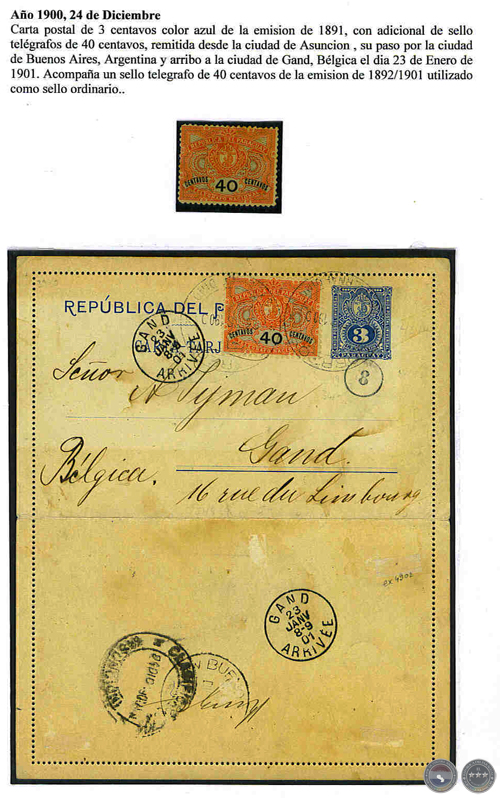 Año 1900, 24 de Diciembre
Carta postal de 3 centavos color azul de la emision de 1891, con adicional de sello
telégrafos de 40 centavos, remitida desde la ciudad de Asuncion , su paso por la ciudad
de Buenos Aires, Argentina y arribo a la ciudad de Gand, Bélgica el dia 23 de Enero de
1901. Acompaña un sello telegrafo de 40 centavos de la emision de 1892/1901 utilizado
como sello ordinario..
CENTAVOS 40 CENTAVOS
REPÚBLICA DEL
40
3
PARAGUAY
GAND
23
JANV
8-9
01
ARRIVÉE
8
Señor
A Tijman
Gand.
Bélgica.
16 rue du Limbourg
GAND
23
JANV
8-9
01
ARRIVÉE